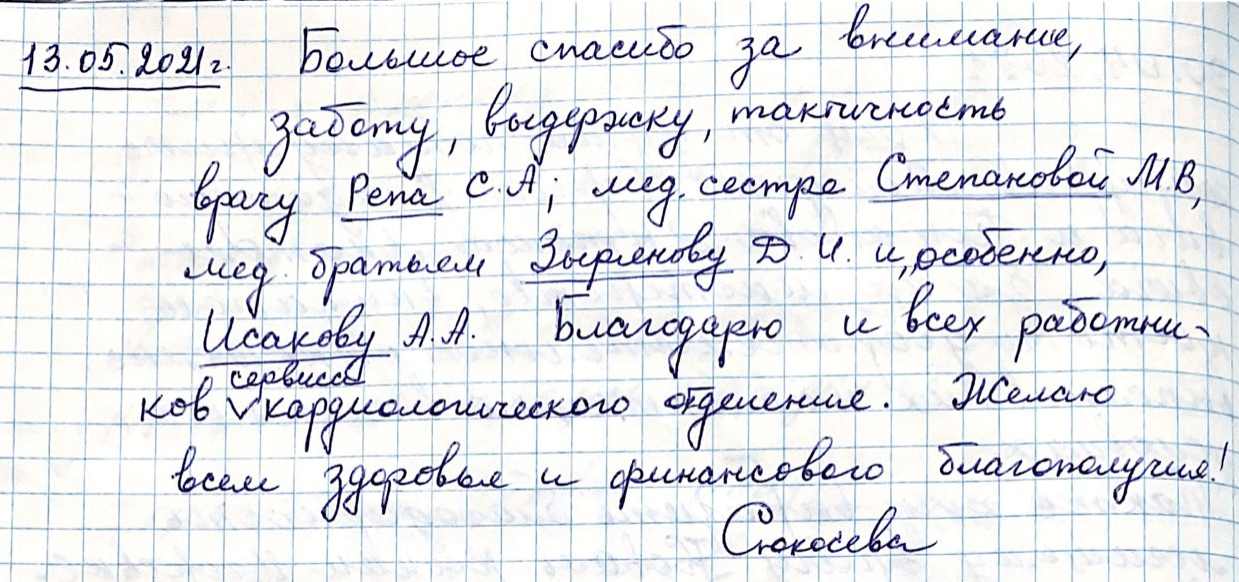 13.05.2021г. Большое спасибо за внимание,
заботу, выдержку, тактичность
врачу Репа С.А; мед. сестре Степановой М.В,
мед. братьям Зырянову Д.И. и, особенно,
Исакову А.А. Благодарю и всех работни-
сервиса
ков кардиологического отделения. Желаю
всем здоровья и финансового благополучия!